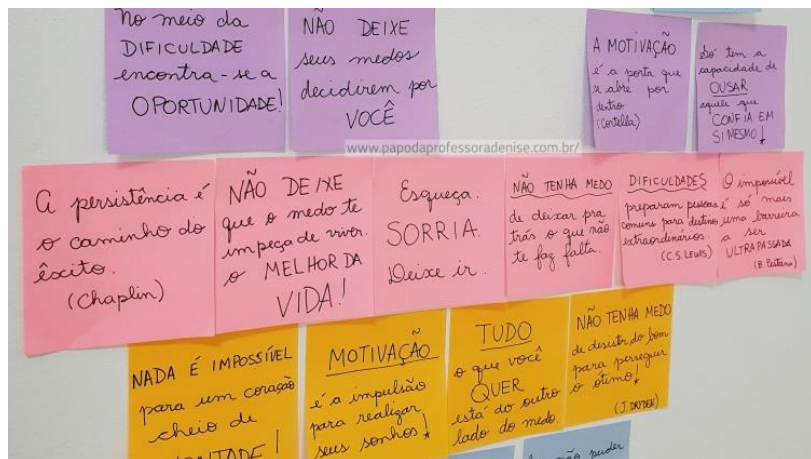 No meio da
DIFICULDADE
encontra-se a
OPORTUNIDADE!
NÃO DEIXE
seus medos
decidirem por
VOCÊ
A MOTIVAÇÃO
é a porta que
se abre por
dentro.
(Cortella)
Só tem a
capacidade de
OUSAR
aquele que
CONFIA EM
SI MESMO!
www.papodaprofessoradenise.com.br/
A persistência é
o caminho do
êxito.
(Chaplin)
NÃO DEIXE
que o medo te
impeça de viver.
o MELHOR DA
VIDA!
Esqueça.
SORRIA.
Deixe ir.
NÃO TENHA MEDO
de deixar pra
trás o que não
te faz falta.
DIFICULDADES
preparam pessoas
comuns para destinos
extraordinários.
(C.S. LEWIS)
O impossível
é só mais
uma barreira
a ser
ULTRAPASSADA
(B. Pestano)
NADA É IMPOSSÍVEL
para um coração
cheio de
MOTIVAÇÃO
é a impulsão
para realizar
seus sonhos!
TUDO
o que você
QUER
está do outro
lado do medo.
NÃO TENHA MEDO
de desistir do bom
para perseguir
o ótimo!
(J. DRYDEN)
não puder